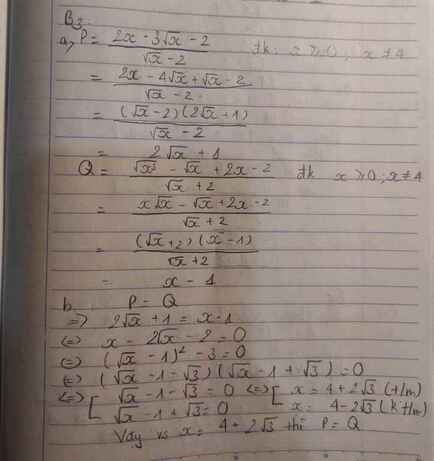 B3.
a, P = (2x - 3√x - 2)/(√x - 2) đk: x ≥ 0; x ≠ 4
= (2x - 4√x + √x - 2)/(√x - 2)
= ((√x - 2)(2√x + 1))/(√x - 2)
= 2√x + 1
Q = (√x³ - √x + 2x - 2)/(√x + 2) đk x ≥ 0; x ≠ 4
= (x√x - √x + 2x - 2)/(√x + 2)
= ((√x + 2)(x - 1))/(√x + 2)
= x - 1
b P = Q
=> 2√x + 1 = x - 1
<=> x - 2√x - 2 = 0
<=> (√x - 1)² - 3 = 0
<=> (√x - 1 - √3)(√x - 1 + √3) = 0
<=> [ √x - 1 - √3 = 0 <=> [ x = 4 + 2√3 (t/m)
√x - 1 + √3 = 0 x = 4 - 2√3 (k t/m)
Vậy vs x = 4 + 2√3 thì P = Q